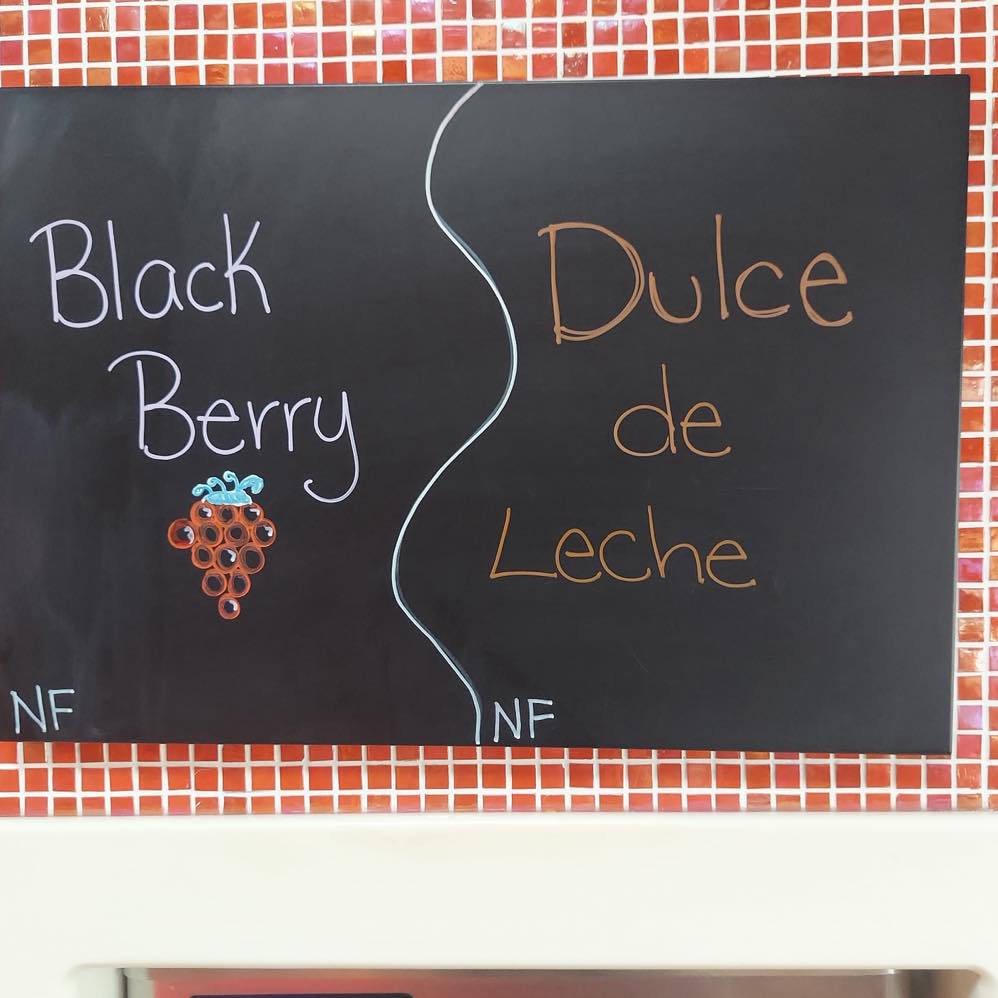 Black
Berry
NF
Dulce
de
Leche
NF